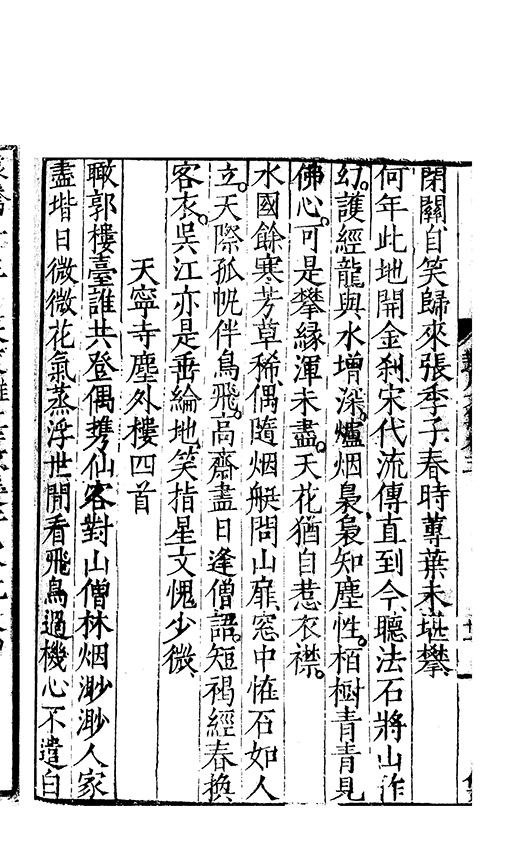 閉關自笑歸來張季子春時蓴葉未堪攀
何年此地開金刹宋代流傳直到今聽法石將山作
幻護經龍與水增深爐烟裊裊知塵性栢樹青青見
佛心可是攀緣渾未盡天花猶自惹衣襟
水國餘寒芳草稀偶隨烟艇問山扉窓中恠石如人
立天際孤帆伴鳥飛高齋盡日逢僧語短褐經春換
客衣吳江亦是垂綸地笑指星文愧少微
天寧寺塵外樓四首
瞰郭樓臺誰共登偶携仙客對山僧林烟渺渺人家
盡堦日微微花氣蒸浮世閒看飛鳥過機心不遣白